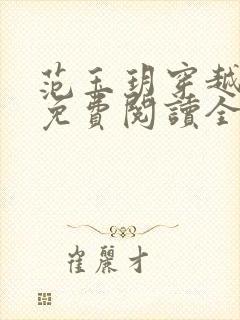 范玉玥穿越
免費閱讀全
崔麗才